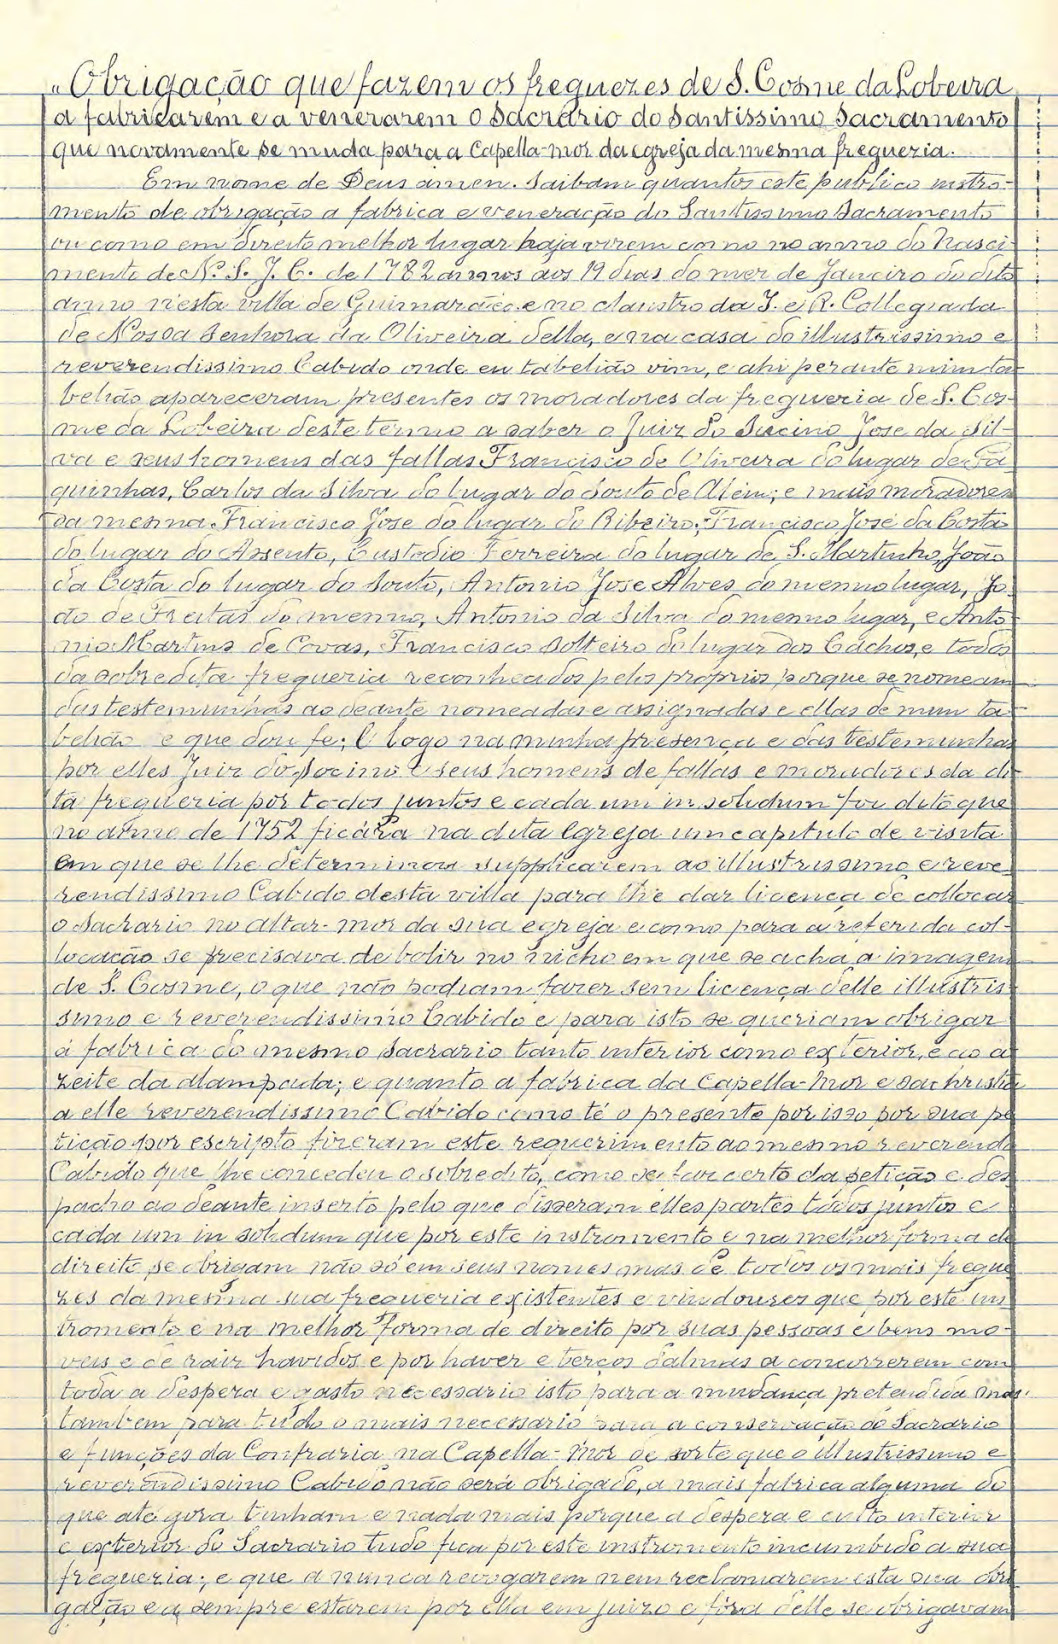 "Obrigação que fazem os freguezes de S. Cosme da Lobeira
a fabricarem e a venerarem o Sacrario do Santissimo Sacramento
que novamente se muda para a Capella-mor da egreja da mesma freguezia.
Em nome de Deus amen. Saibam quantos este publico instro-
mento de obrigação a fabrica e veneração do Santissimo Sacramento
ou como em direito melhor lugar haja virem como no anno do Nasci-
mento de N. S. J. C. de 1782 annos aos 19 dias do mez de Janeiro do dito
anno n'esta villa de Guimarães e no claustro da I. e R. Collegiada
de Nossa Senhora da Oliveira della, e na casa do illustrissimo e
reverendissimo Cabido onde eu tabelião vim, e ahi perante mim ta-
belião apareceram presentes os moradores da freguezia de S. Cos-
me da Lobeira deste termo a saber o Juiz do Sucino Jose da Sil-
va e seus homens das fallas Francisco de Oliveira do lugar de La-
quinhas, Carlos da Silva do lugar do Souto de Alem; e mais moradores
da mesma Francisco Jose do lugar do Ribeiro; Francisco José da Costa
do lugar do Assento, Custodio Ferreira do lugar de S. Martinho, João
da Costa do lugar do Souto, Antonio Jose Alves do mesmo lugar, Jo-
ão de Freitas do mesmo, Antonio da Silva do mesmo lugar, e Anto-
nio Martins de Covas, Francisco solteiro do lugar dos Cachos, e todos
da sobredita freguezia reconhecidos pelos proprios porque se nomeam
das testemunhas ao deante nomeadas e assignadas e ellas de mim ta-
belião e que dou fe; E logo na minha presença e das testemunhas
por elles Juiz do Socino e seus homens de fallas e moradores da di-
ta freguezia por todos juntos e cada um in soludum foi dito que
no anno de 1752 ficára na dita Egreja um capitulo de visita
em que se lhe determinou supplicarem ao illustrissimo e reve-
rendissimo Cabido desta villa para lhe dar licença de collocar
o Sacrario no altar-mor da sua egreja e como para a referida col-
locação se precisava de bolir no nicho em que se acha a imagem
de S. Cosme, o que não podiam fazer sem licença delle illustris-
simo e reverendissimo Cabido e para isto se queriam obrigar
á fabrica do mesmo Sacrario tanto interior como exterior, e ao a-
zeite da alampada; e quanto a fabrica da Capella-Mor e sachristia
a elle reverendissimo Cabido como té o presente por isso por sua pe
tição por escripto fizeram este requerimento ao mesmo reverendo
Cabido que lhe concedeu o sobredito, como se faz certo da petição e des
pacho ao deante inserto pelo que disseram elles partes todos juntos e
cada um in soludum que por este instromento e na melhor forma de
direito se obrigam não só em seus nomes mas de todos os mais fregue
zes da mesma sua freguezia existentes e vindouros que por este ins
tromento e na melhor forma de direito por suas pessoas e bens mo-
veis e de raiz havidos e por haver e terços dalmas a concorrerem com
toda a despeza e gasto necessario isto para a mudança pretendida mas
tambem para tudo o mais necessario para a conservação do Sacrario
e funções da Confraria na Capella-Mor de sorte que o illustrissimo e
reverendissimo Cabido não será obrigado, a mais fabrica alguma do
que até gora tinham e nada mais porque a despeza e culto interior
e exterior do Sacrario tudo fica por este instromento incumbido a sua
freguezia; e que a nunca revogarem nem reclamarem esta sua obri
gação e a sempre estarem por ella em juizo e fóra delle se obrigavam